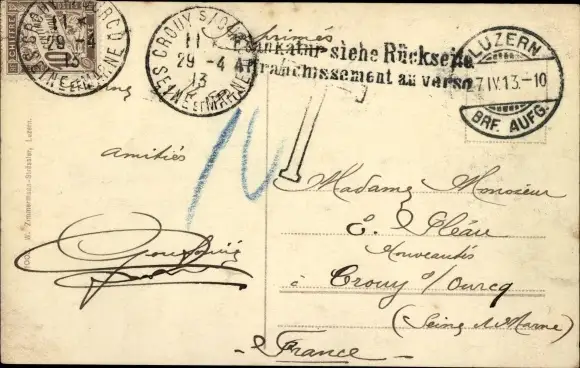 CROUY S/OURCQ
11
29 -4
13
SEINE ET MARNE
CHIFFRE
10
CROUY S/OURCQ
11
29 -4
13
SEINE ET MARNE
Imprimés
Frankatur siehe Rückseite
Affranchissement au verso
LUZERN
7.IV.13.-10
BRF. AUFG.
T
10
amitiés
W. Zimmermann-Strässler, Luzern.
Madame Monsieur
E. Pléau
Nouveautés
à Crouy s/Ourcq
(Seine et Marne)
- France -